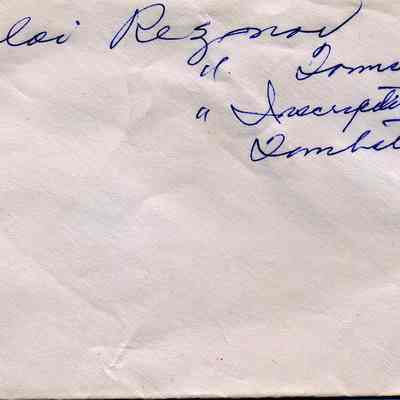 lai Rezanov
" Toms
" Inscripti
Tombst